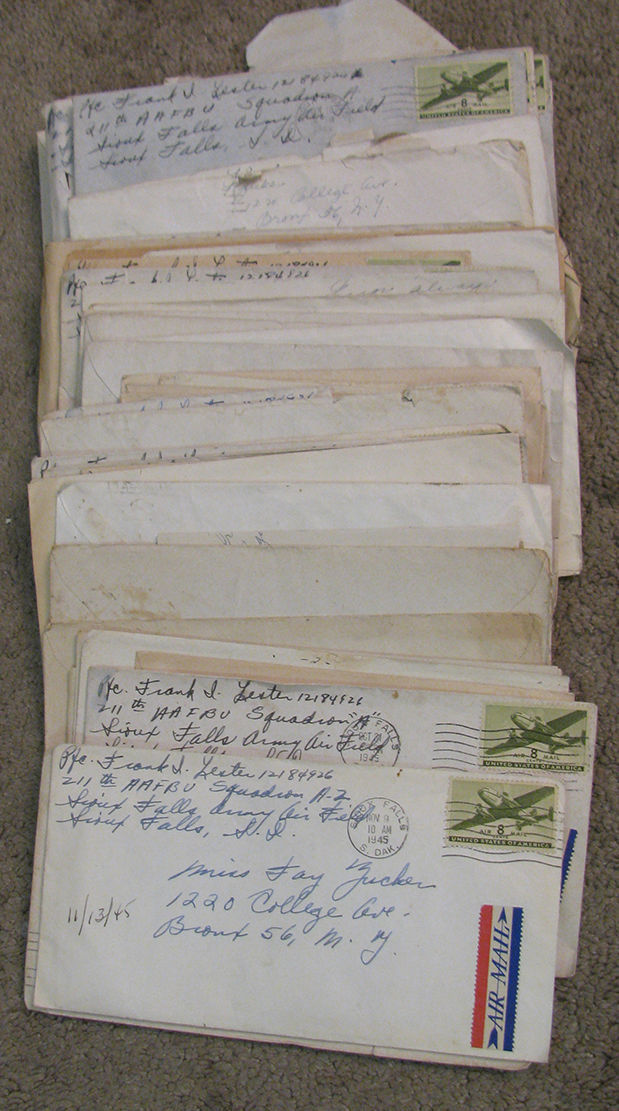 Pfc. Frank I. Lester 12184926
211th AAFBU Squadron A
Sioux Falls Army Air Field
Sioux Falls, S.D.
8
AIR MAIL
UNITED STATES OF AMERICA
1220 College Ave.
Bronx 56, N.Y.
12184926
Pfc. Frank I. Lester 12184926
211th AAFBU Squadron "A"
Sioux Falls Army Air Field
FALLS
1945
8
CENTS
AIR MAIL
UNITED STATES OF AMERICA
Pfc. Frank I. Lester 12184926
211th AAFBU Squadron A-2
Sioux Falls Army Air Field
Sioux Falls, S.D.
SIOUX FALLS
NOV 9
10 AM
1945
S. DAK.
8
CENTS
AIR MAIL
UNITED STATES OF AMERICA
Miss Fay Zucker
1220 College Ave.
Bronx 56, N.Y.
11/13/45
AIR MAIL